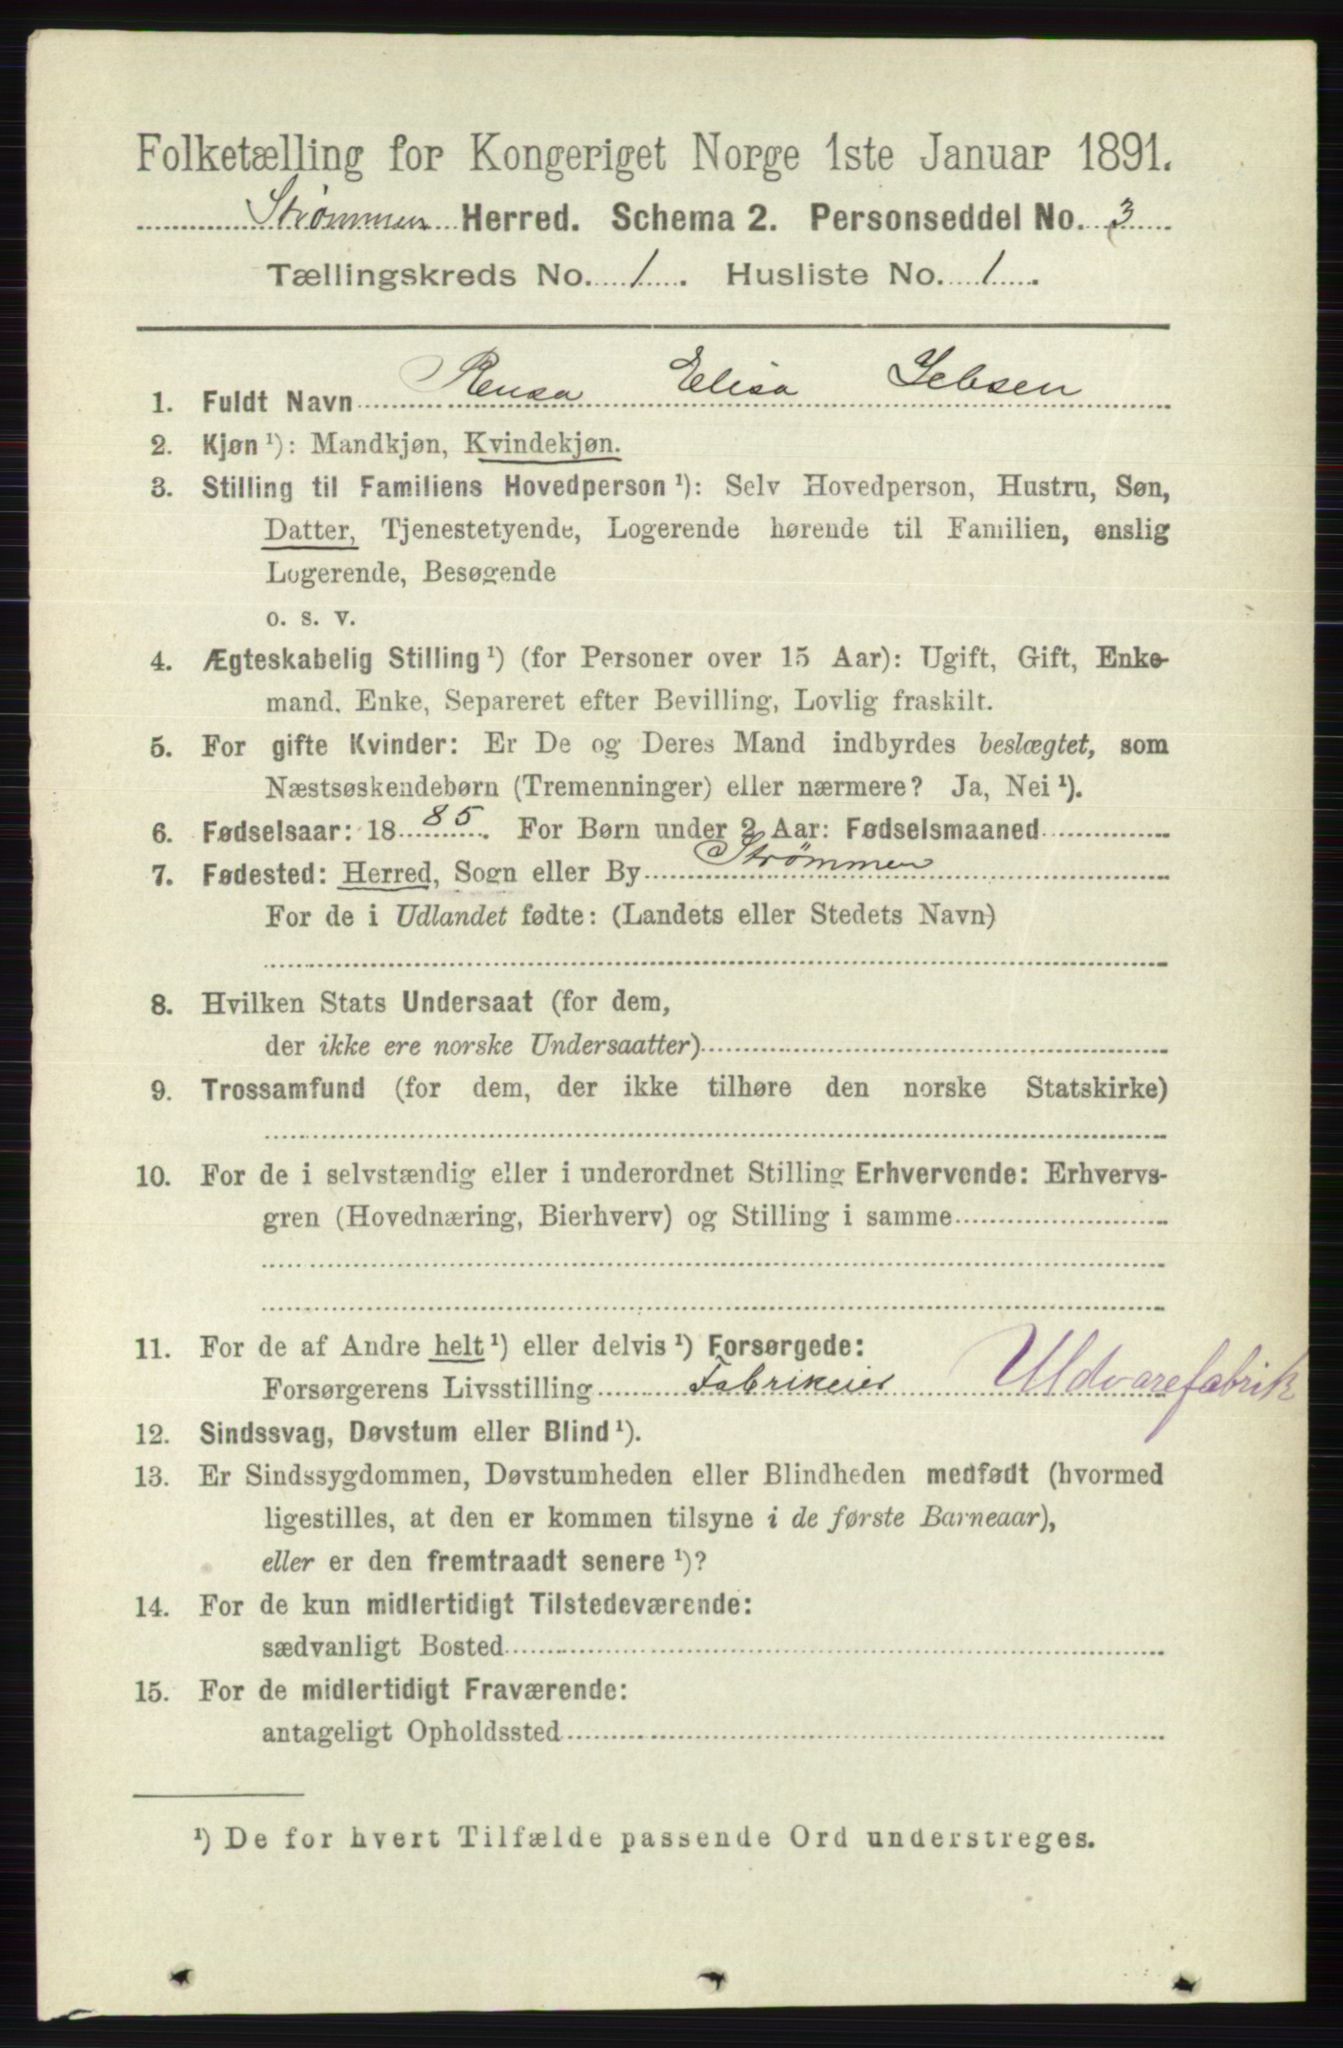 Folketælling for Kongeriget Norge 1ste Januar 1891.
Strømmen Herred. Schema 2. Personseddel No. 3
Tællingskreds No. 1. Husliste No. 1.
1. Fuldt Navn Elisa Jebsen
2. Kjøn ¹): Mandkjøn, Kvindekjøn.
3. Stilling til Familiens Hovedperson ¹): Selv Hovedperson, Hustru, Søn,
Datter, Tjenestetyende, Logerende hørende til Familien, enslig
Logerende, Besøgende
o. s. v.
4. Ægteskabelig Stilling ¹) (for Personer over 15 Aar): Ugift, Gift, Enke-
mand. Enke, Separeret efter Bevilling, Lovlig fraskilt.
5. For gifte Kvinder: Er De og Deres Mand indbyrdes beslægtet, som
Næstsøskendebørn (Tremenninger) eller nærmere? Ja, Nei ¹).
6. Fødselsaar: 18 85. For Børn under 2 Aar: Fødselsmaaned
7. Fødested: Herred, Sogn eller By Strømmen
For de i Udlandet fødte: (Landets eller Stedets Navn)
8. Hvilken Stats Undersaat (for dem,
der ikke ere norske Undersaatter)
9. Trossamfund (for dem, der ikke tilhøre den norske Statskirke)
10. For de i selvstændig eller i underordnet Stilling Erhvervende: Erhvervs-
gren (Hovednæring, Bierhverv) og Stilling i samme
11. For de af Andre helt ¹) eller delvis ¹) Forsørgede:
Forsørgerens Livsstilling Fabrikeier Uldvarefabrik
12. Sindssvag, Døvstum eller Blind ¹).
13. Er Sindssygdommen, Døvstumheden eller Blindheden medfødt (hvormed
ligestilles, at den er kommen tilsyne i de første Barneaar),
eller er den fremtraadt senere ¹)?
14. For de kun midlertidigt Tilstedeværende:
sædvanligt Bosted
15. For de midlertidigt Fraværende:
antageligt Opholdssted
¹) De for hvert Tilfælde passende Ord understreges.